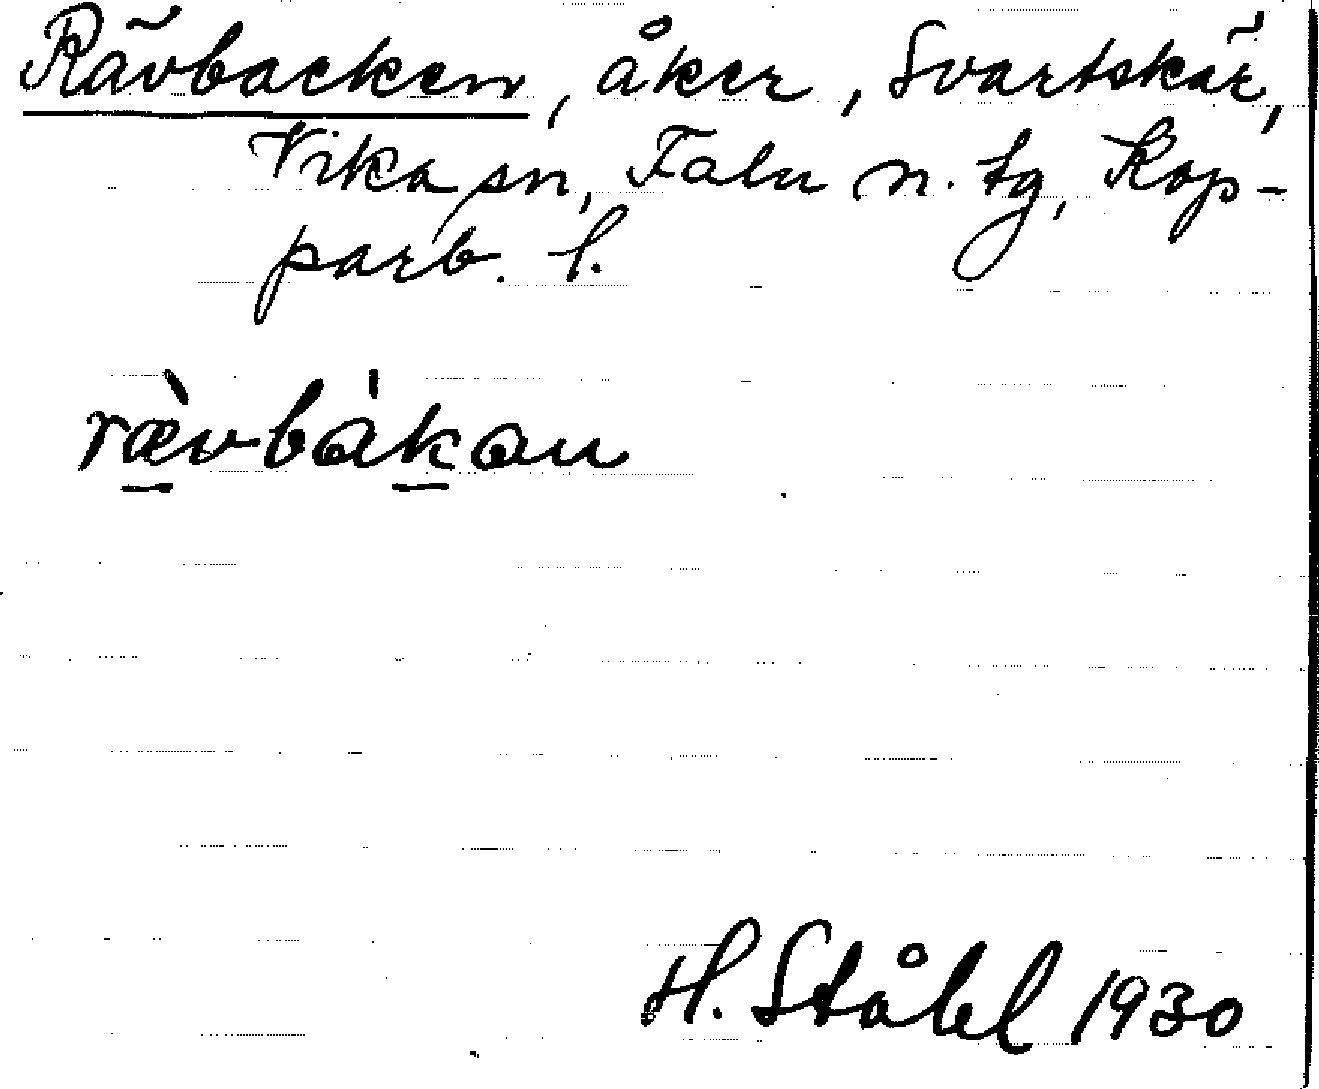 Rävbacken, åker, Svartskär,
Vika sn, Falu n. tg, Kop-
parb. l.
rævbákan
H. Ståhl 1930